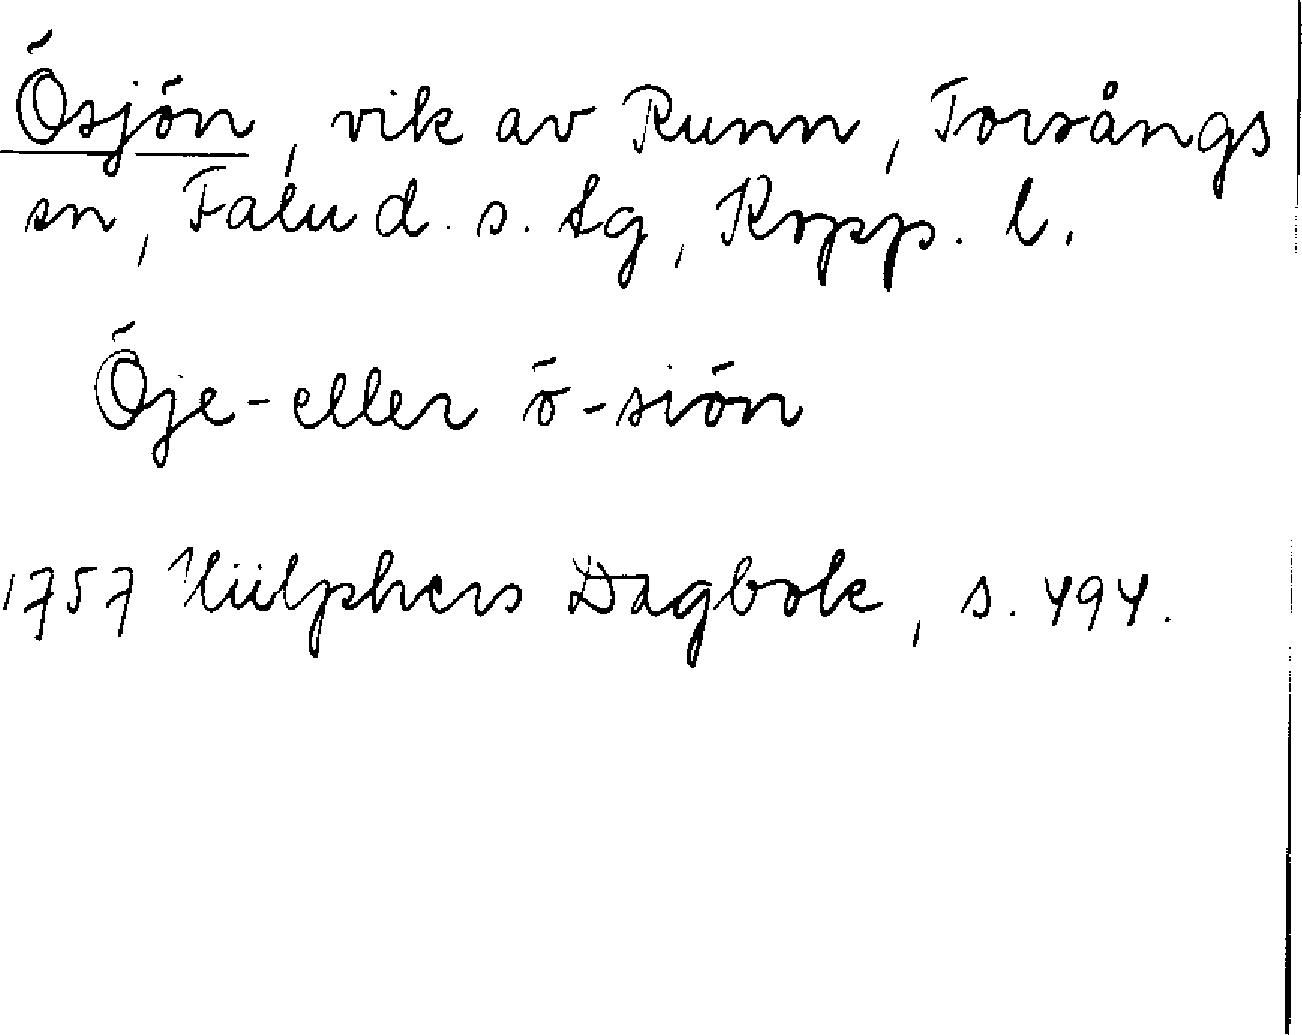 Ösjön, vik av Runn, Torsångs
sn, Falu d. s. tg, Kopp. l.
Öje- eller ö-siön
1757 Hülphers Dagbok, s. 494.